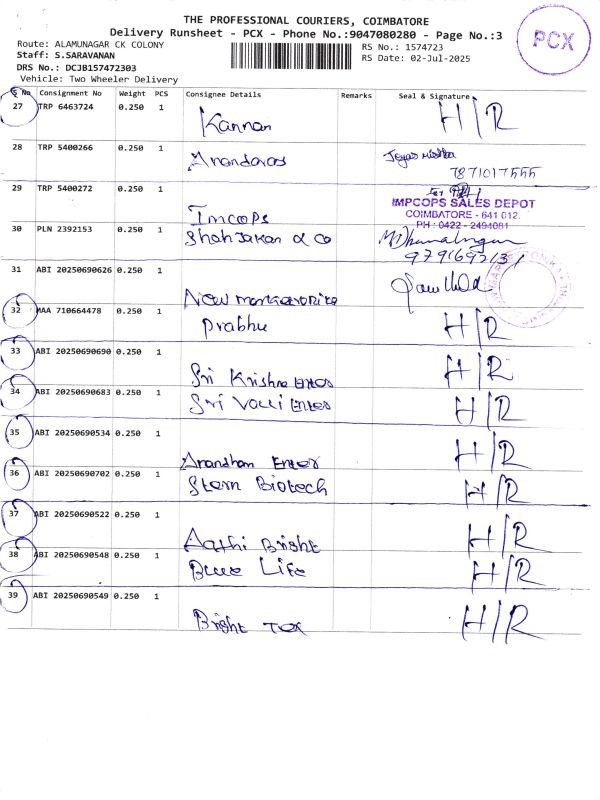 THE PROFESSIONAL COURIERS, COIMBATORE
Delivery Runsheet - PCX - Phone No.:9047080280 - Page No.:3
Route: ALAMUNAGAR CK COLONY
RS No.: 1574723
Staff: S.SARAVANAN
RS Date: 02-Jul-2025
DRS No.: DCJB157472303
Vehicle: Two Wheeler Delivery
PCX
S No Consignment No Weight PCS Consignee Details Remarks Seal & Signature
27 TRP 6463724 0.250 1 Kannan H/R
28 TRP 5400266 0.250 1
29 TRP 5400272 0.250 1 Imcops
IMPCOPS SALES DEPOT
COIMBATORE - 641 012.
PH : 0422 - 2494081
30 PLN 2392153 0.250 1 & Co
31 ABI 20250690626 0.250 1 New
32 MAA 710664478 0.250 1 Prabhu H/R
33 ABI 20250690690 0.250 1 Sri Krishna Enter H/R
34 ABI 20250690683 0.250 1 Sri Valli Enter H/R
35 ABI 20250690534 0.250 1 Enter H/R
36 ABI 20250690702 0.250 1 Stern Biotech H/R
37 ABI 20250690522 0.250 1 Aathi Bright H/R
38 ABI 20250690548 0.250 1 Blue Life H/R
39 ABI 20250690549 0.250 1 Bright Tex H/R